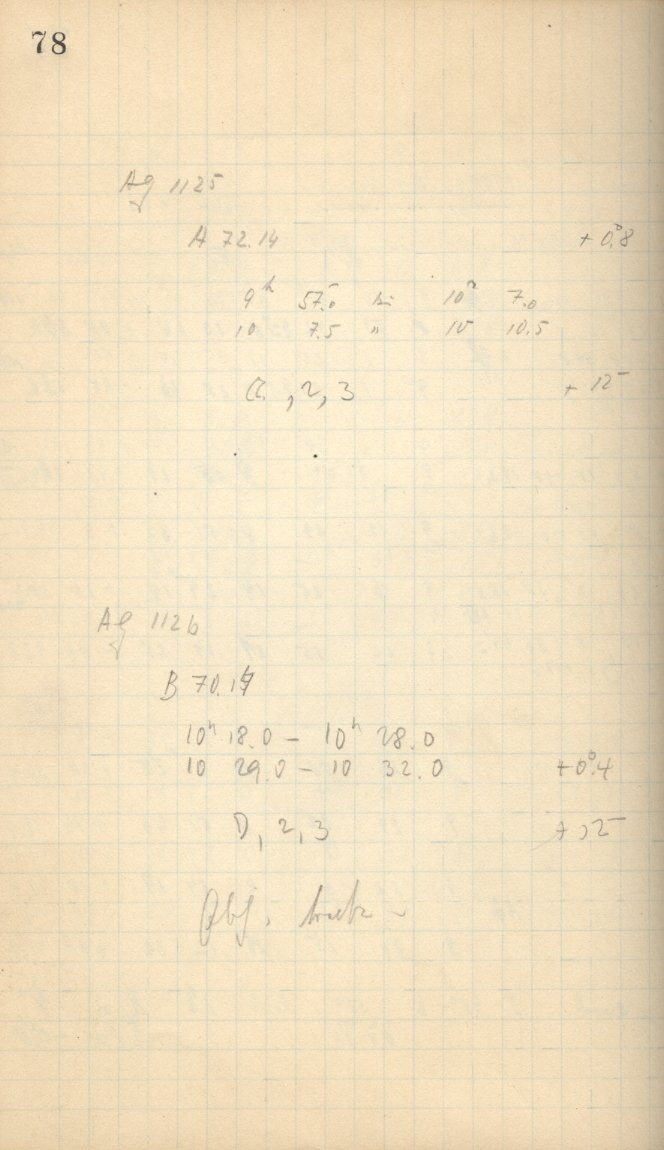 78
Ag 1125
A 72.14 +0°.8
9h 57.0 bis 10h 7.0
10 7.5 " 10 10.5
, 2, 3 + 12
Ag 1126
B 70.
10h 18.0 — 10h 28.0
10 29.0 — 10 32.0 +0°.4
D, 2, 3
Obj.